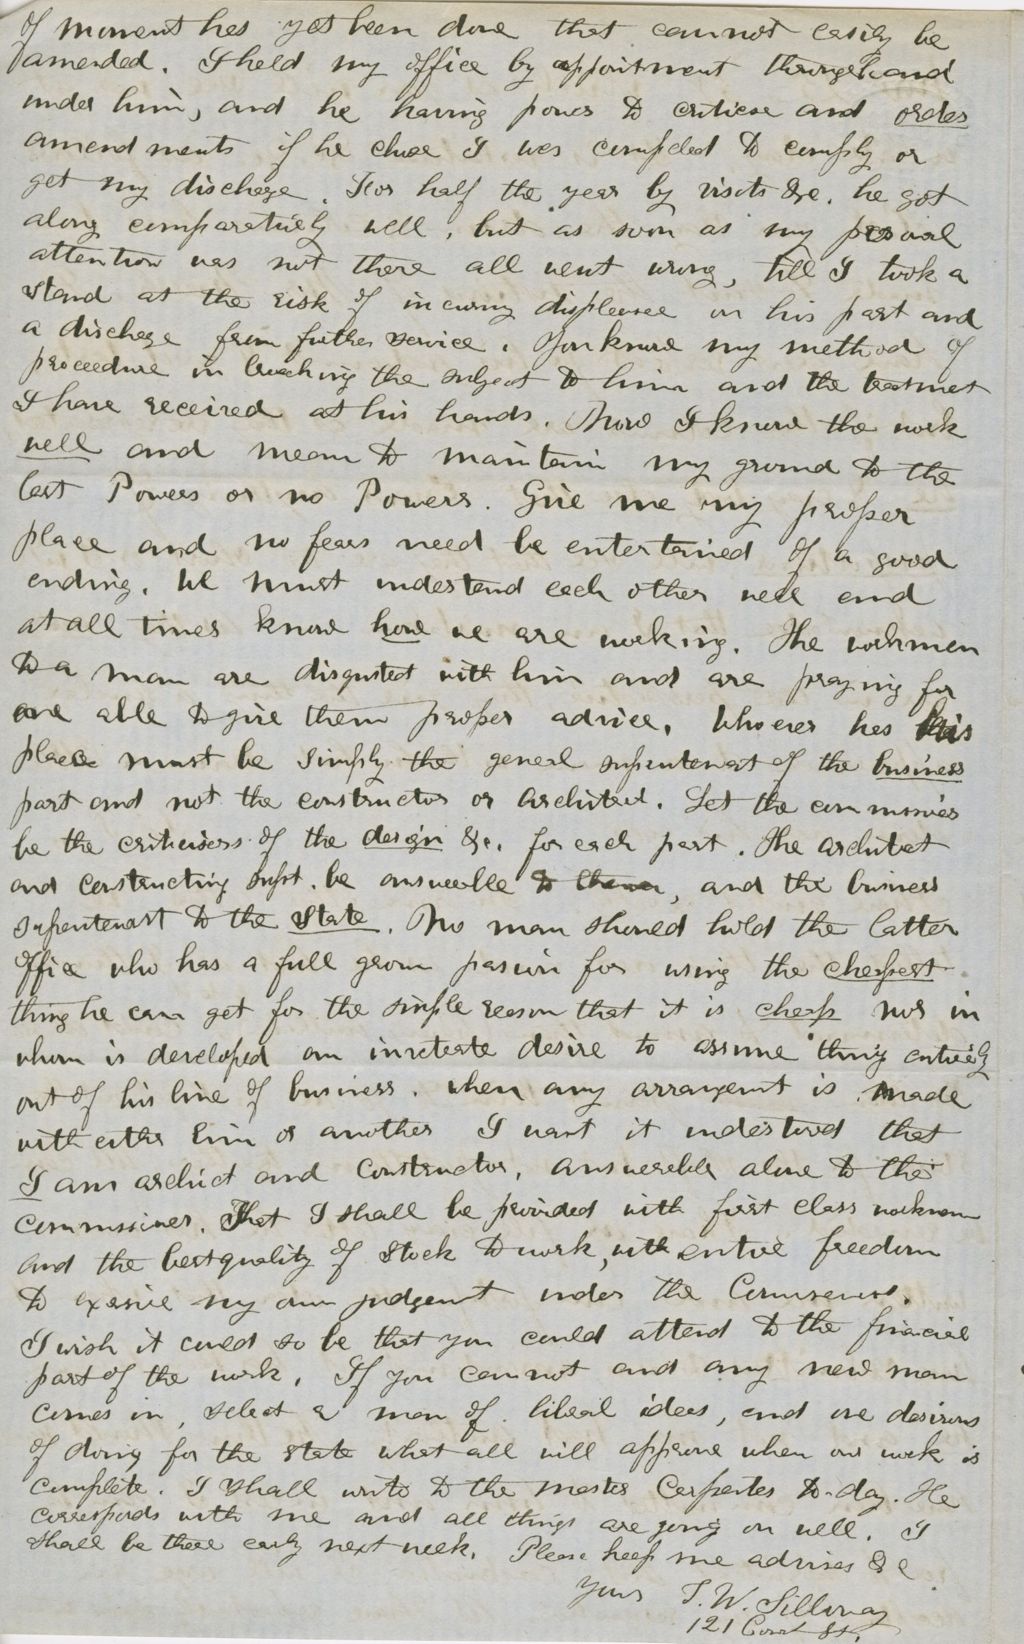 of moment has yet been done that cannot easily be
amended. I held my office by appointment through and
under him, and he having power to criticise and order
amendments if he chose I was compelled to comply or
get my discharge. For half the year by visits &c. he got
along comparatively well, but as soon as my personal
attention was not there all went wrong, till I took a
stand at the risk of incuring displeasure on his part and
a discharge from further service. You know my method of
proceedure in broaching the subject to him and the treatment
I have received at his hands. Now I know the work
well and mean to maintain my ground to the
last Powers or no Powers. Give me my proper
place and no fears need be entertained of a good
ending. We must understand each other well and
at all times know how we are working. The workmen
to a man are disgusted with him and are praying for
one able to give them proper advice. Whoever has his
place must be simply the general superintendent of the business
part and not the constructor or architect. Let the commissioners
be the criticisers of the design &c. for each part. The architect
and constructing supt. be answerable to them, and the business
superintendent to the State. No man should hold the latter
office who has a full grown passion for using the cheapest
thing he can get for the simple reason that it is cheap nor in
whom is developed an inveterate desire to assume things entirely
out of his line of business. When any arrangement is made
with either him or another I want it understood that
I am architect and constructor, answerable alone to the
commissioners. That I shall be provided with first class workmen
and the best quality of stock to work, with entire freedom
to exercise my own judgement under the Commissioners.
I wish it could so be that you could attend to the financial
part of the work. If you cannot and any new man
comes in, select a man of liberal ideas, and one desirous
of doing for the State what all will approve when our work is
complete. I shall write to the master Carpenter to-day. He
corresponds with me and all things are going on well. I
shall be there early next week. Please keep me advised &c
Yours T. W. Silloway
121 Court St.